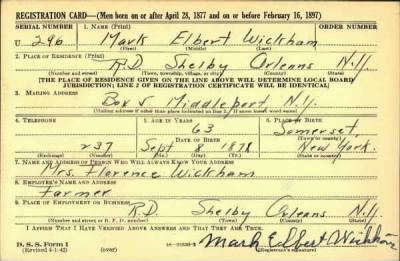 REGISTRATION CARD—(Men born on or after April 28, 1877 and on or before February 16, 1897)
SERIAL NUMBER 1. NAME (Print) ORDER NUMBER
U 296 Mark Elbert Wickham
(First) (Middle) (Last)
2. PLACE OF RESIDENCE (Print)
R.D. Shelby Orleans N.Y.
(Number and street) (Town, township, village, or city) (County) (State)
[THE PLACE OF RESIDENCE GIVEN ON THE LINE ABOVE WILL DETERMINE LOCAL BOARD
JURISDICTION; LINE 2 OF REGISTRATION CERTIFICATE WILL BE IDENTICAL]
3. MAILING ADDRESS
Box Middleport N.Y.
[Mailing address if other than place indicated on line 2. If same insert word same]
4. TELEPHONE 5. AGE IN YEARS 6. PLACE OF BIRTH
63 Somerset,
DATE OF BIRTH (Town or county)
237 Sept 8 1878 New York.
(Exchange) (Number) (Mo.) (Day) (Yr.) (State or country)
7. NAME AND ADDRESS OF PERSON WHO WILL ALWAYS KNOW YOUR ADDRESS
Mrs. Florence Wickham
8. EMPLOYER'S NAME AND ADDRESS
Farmer
9. PLACE OF EMPLOYMENT OR BUSINESS
R.D. Shelby Orleans N.Y.
(Number and street or R. F. D. number) (Town) (County) (State)
I AFFIRM THAT I HAVE VERIFIED ABOVE ANSWERS AND THAT THEY ARE TRUE.
D. S. S. Form 1
(Revised 4-1-42) (over) Mark Elbert Wickham
(Registrant's signature)